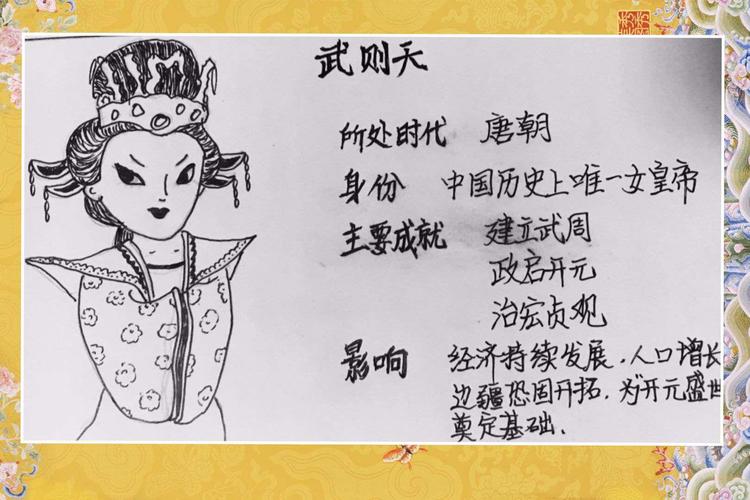 武则天
所处时代 唐朝
身份 中国历史上唯一女皇帝
主要成就 建立武周
政启开元
治宏贞观
影响 经济持续发展.人口增长
边疆恐固开拓.为开元盛世
奠定基础.